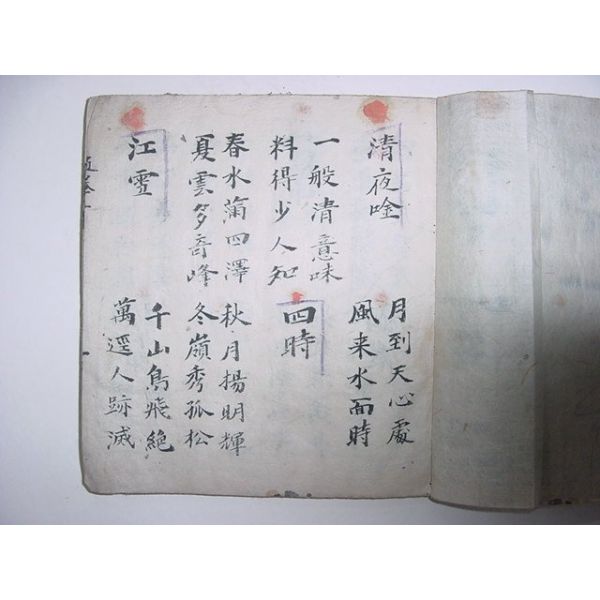 清夜唫
月到天心處
風来水面時
一般清意味
料得少人知
四時
春水滿四澤
夏雲多竒峰
秋月揚明輝
冬嶺秀孤松
江雪
千山鳥飛絶
萬逕人跡滅